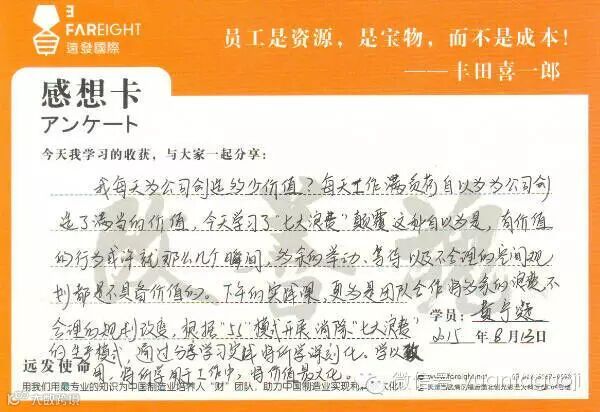 FAREIGHT
速發國際
员工是资源，是宝物，而不是成本！
——丰田喜一郎
感想卡
アンケート
今天我学习的收获，与大家一起分享：
我每天为公司创造多少价值？每天工作满负荷自以为为公司创
造了满当的价值，今天学习了“七大浪费”颠覆这种自以为是，有价值
的行为或许就那么几个瞬间，多余的举动、等待以及不合理的空间规
划都是不具备价值的。下午的实践课，更为是团队合作将多余的浪费、不
合理的规划改造，根据“5S”模式开展消除“七大浪费”
的生产模式，通过分享学习实践将所学谨记化。学以致
用，将所学用于工作中，将价值最大化。
改善魂
学员：
2015 年 8 月 13 日
远发使命
用我们用最专业的知识为中国制造业培养人“财”团队，助力中国制造业实现利
www.fareight.net
大数跨境